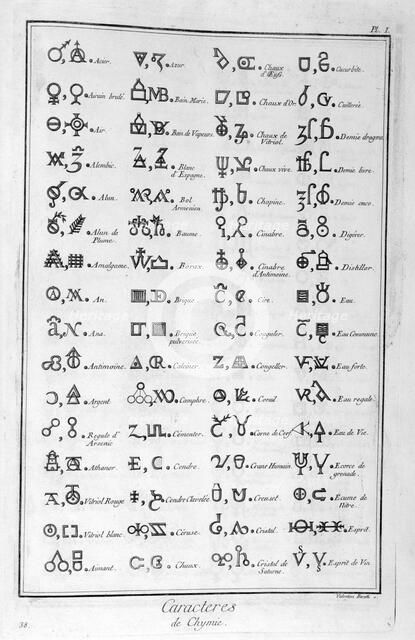 Pl. I.
Acier.
Azur.
Chaux d'Œufs
Cucurbite.
Airain brulé.
Bain Marie.
Chaux d'Or.
Cuillerée.
Air.
Bain de Vapeurs.
Chaux de Vitriol.
Demie dragme.
Alembic.
Blanc d'Espagne.
Chaux vive.
Demie livre.
Alun.
Bol Armenien.
Chopine.
Demie once.
Alun de Plume.
Baume.
Cinabre.
Digérer.
Amalgame.
Borax.
Cinabre d'Antimoine.
Distiller.
An.
Brique.
Cire.
Eau.
Ana.
Brique pulverisée.
Coaguler.
Eau Commune.
Antimoine.
Calciner.
Congeller.
Eau forte.
Argent.
Camphre.
Corail.
Eau regale.
Regule d'Arsenic
Cémenter.
Corne de Cerf.
Eau de Vie.
Athanor.
Cendre.
Crane Humain.
Ecorce de grenade.
Vitriol Rouge
Cendre Clavelée.
Creuset.
Ecume de Nitre.
Vitriol blanc.
Céruse.
Cristal.
Esprit.
Aimant.
Chaux.
Cristal de Saturne.
Esprit de Vin
38.
Caracteres
de Chymie.
Heritage